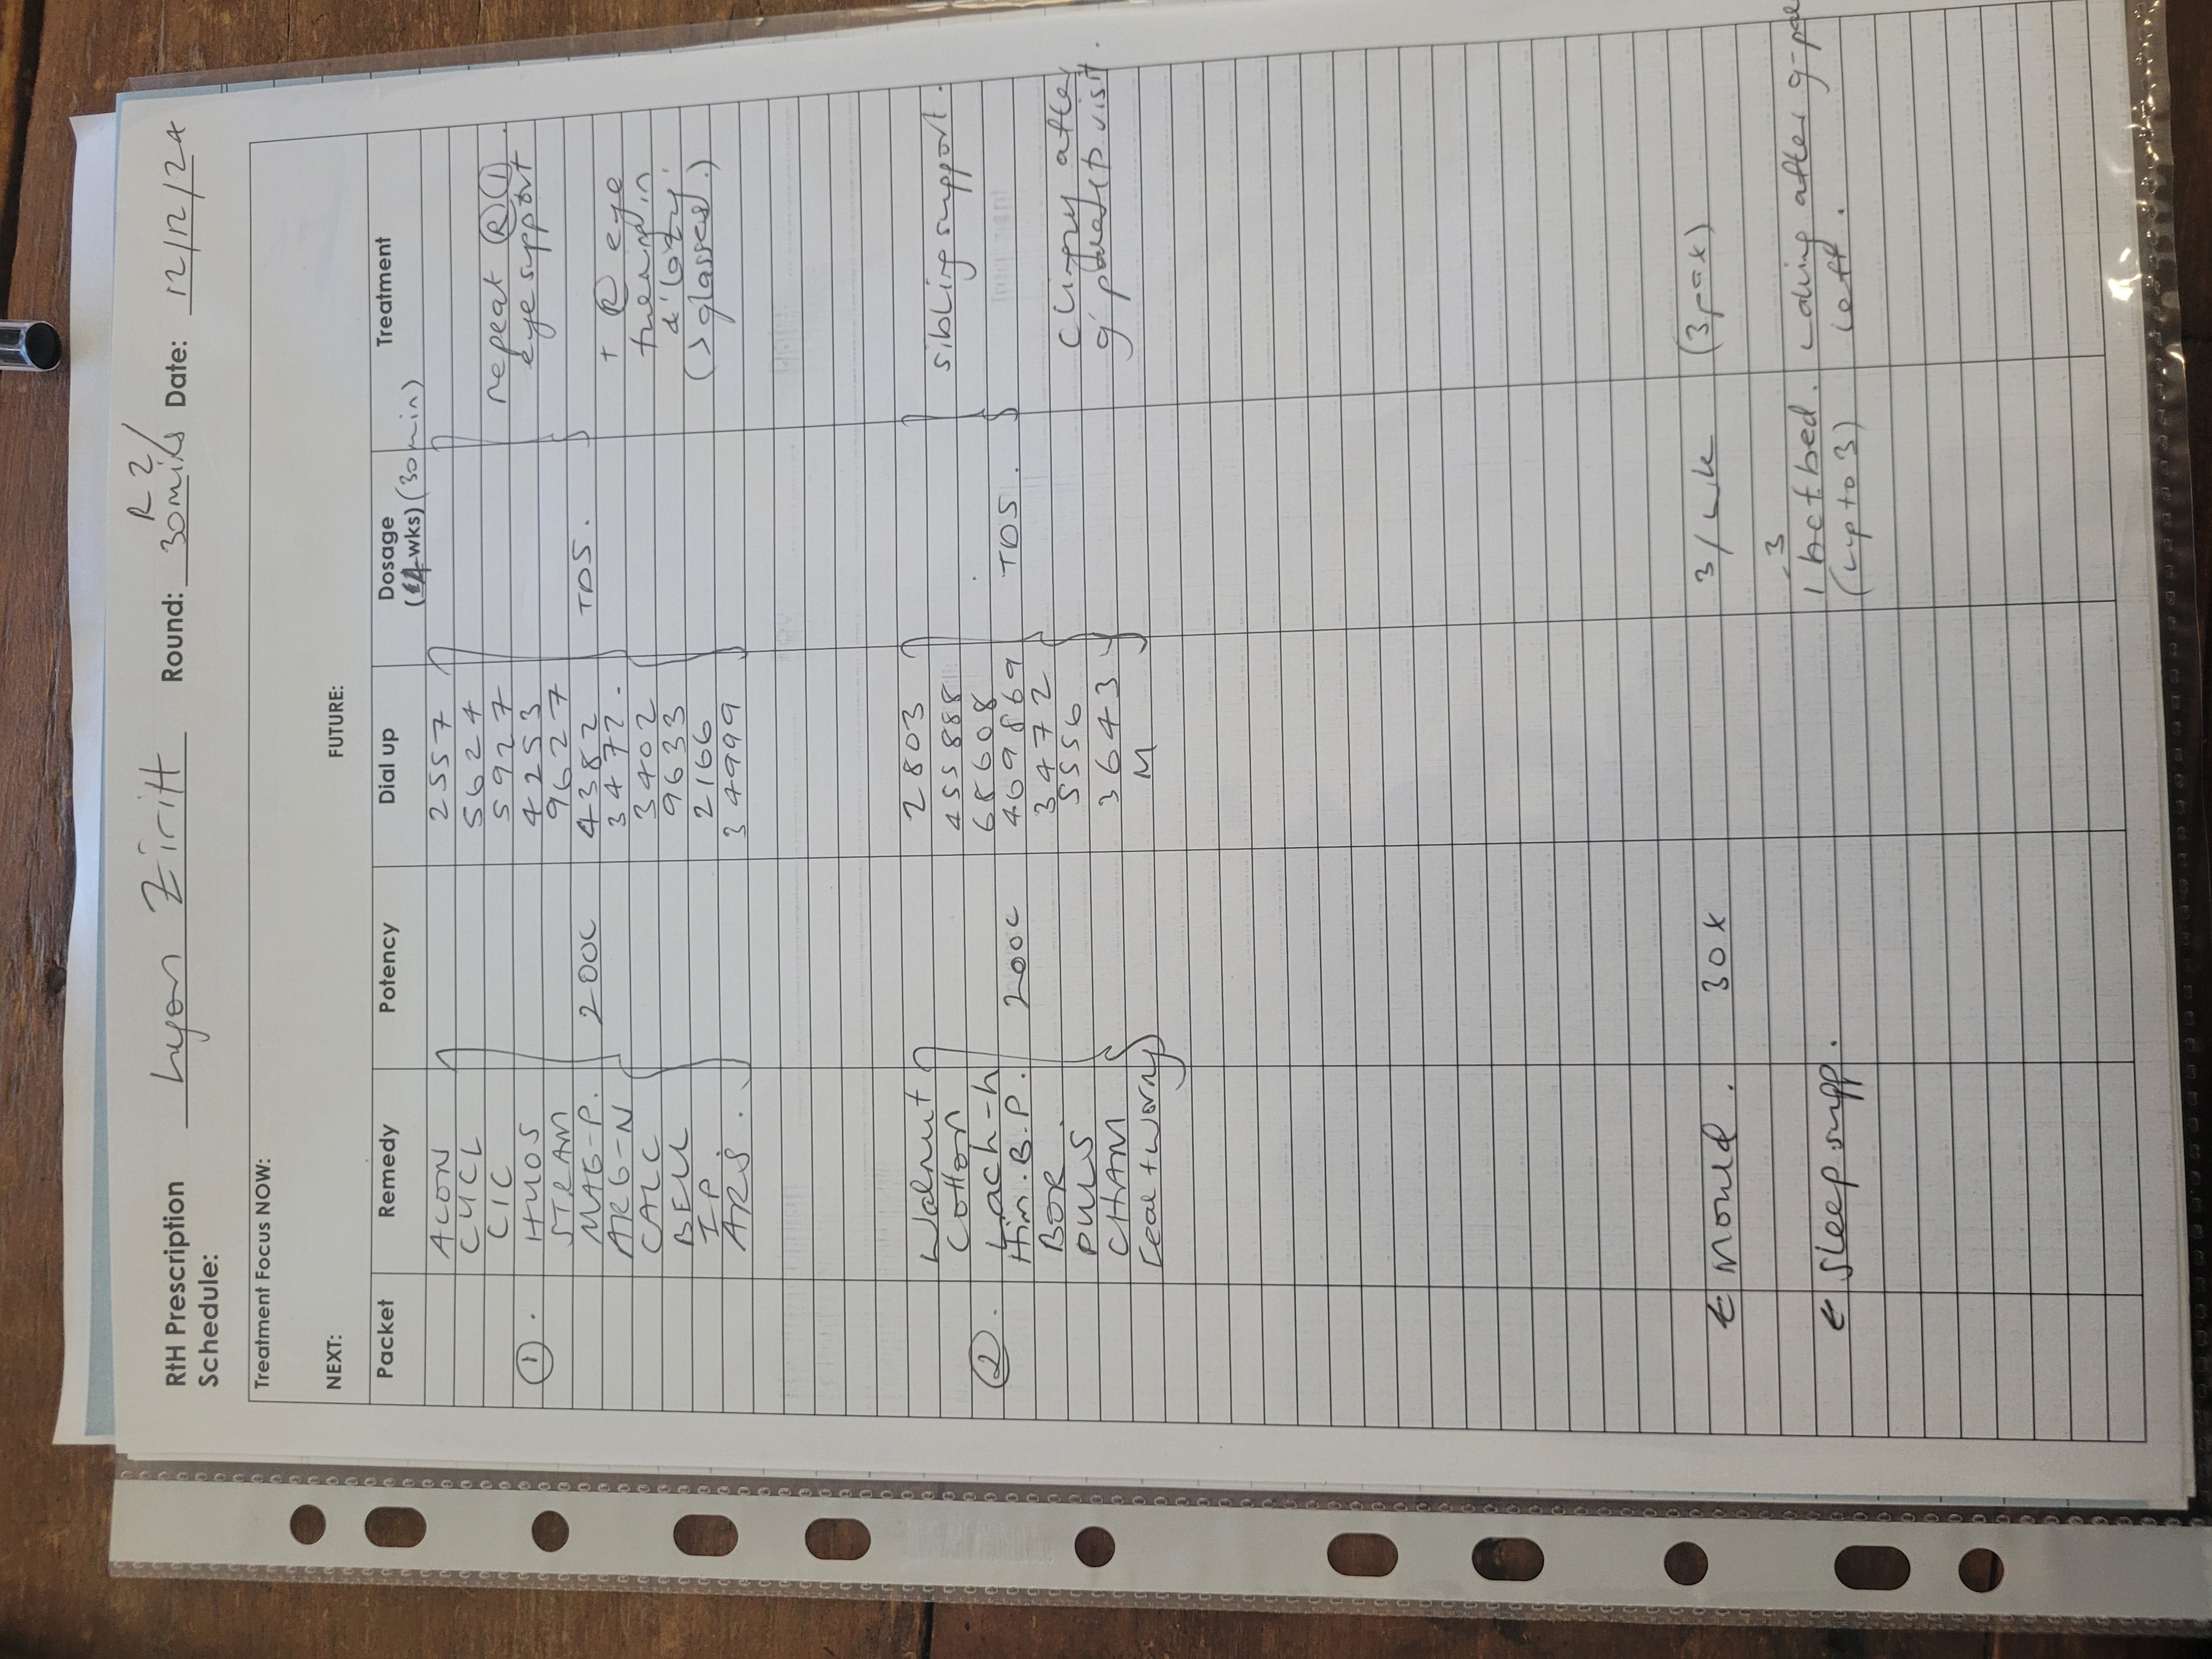 RtH Prescription Schedule: Lyon Ziritt Round: R2/ 30mils Date: 12/12/24
Treatment Focus NOW:
NEXT: FUTURE:
Packet Remedy Potency Dial up Dosage (4 wks) (30min) Treatment
ACON 2557
CYCL 5624
CIC 5927 repeat R ①.
① . HYOS 4253 eye support
STRAM 9627
MAG-P. 200C 4382 TDS.
ARG-N 3472. + R eye
CALC 3402 turning in
BELL 9633 & 'lazy'
I P 2166 (> glasses.)
ARS. 34999
Walnut 2803
Cotton 455888 sibling support.
② . Lach-h 68608
Him.B.P. 200C 469869 TDS.
BOR 3472
PULS 5556 Clingy after
CHAM 3643 g'parents visit.
[eat + worry M
Mould. 30K 3/wk (3pax)
Sleep supp. 1-3 hct bed. after
(up to 3) left.